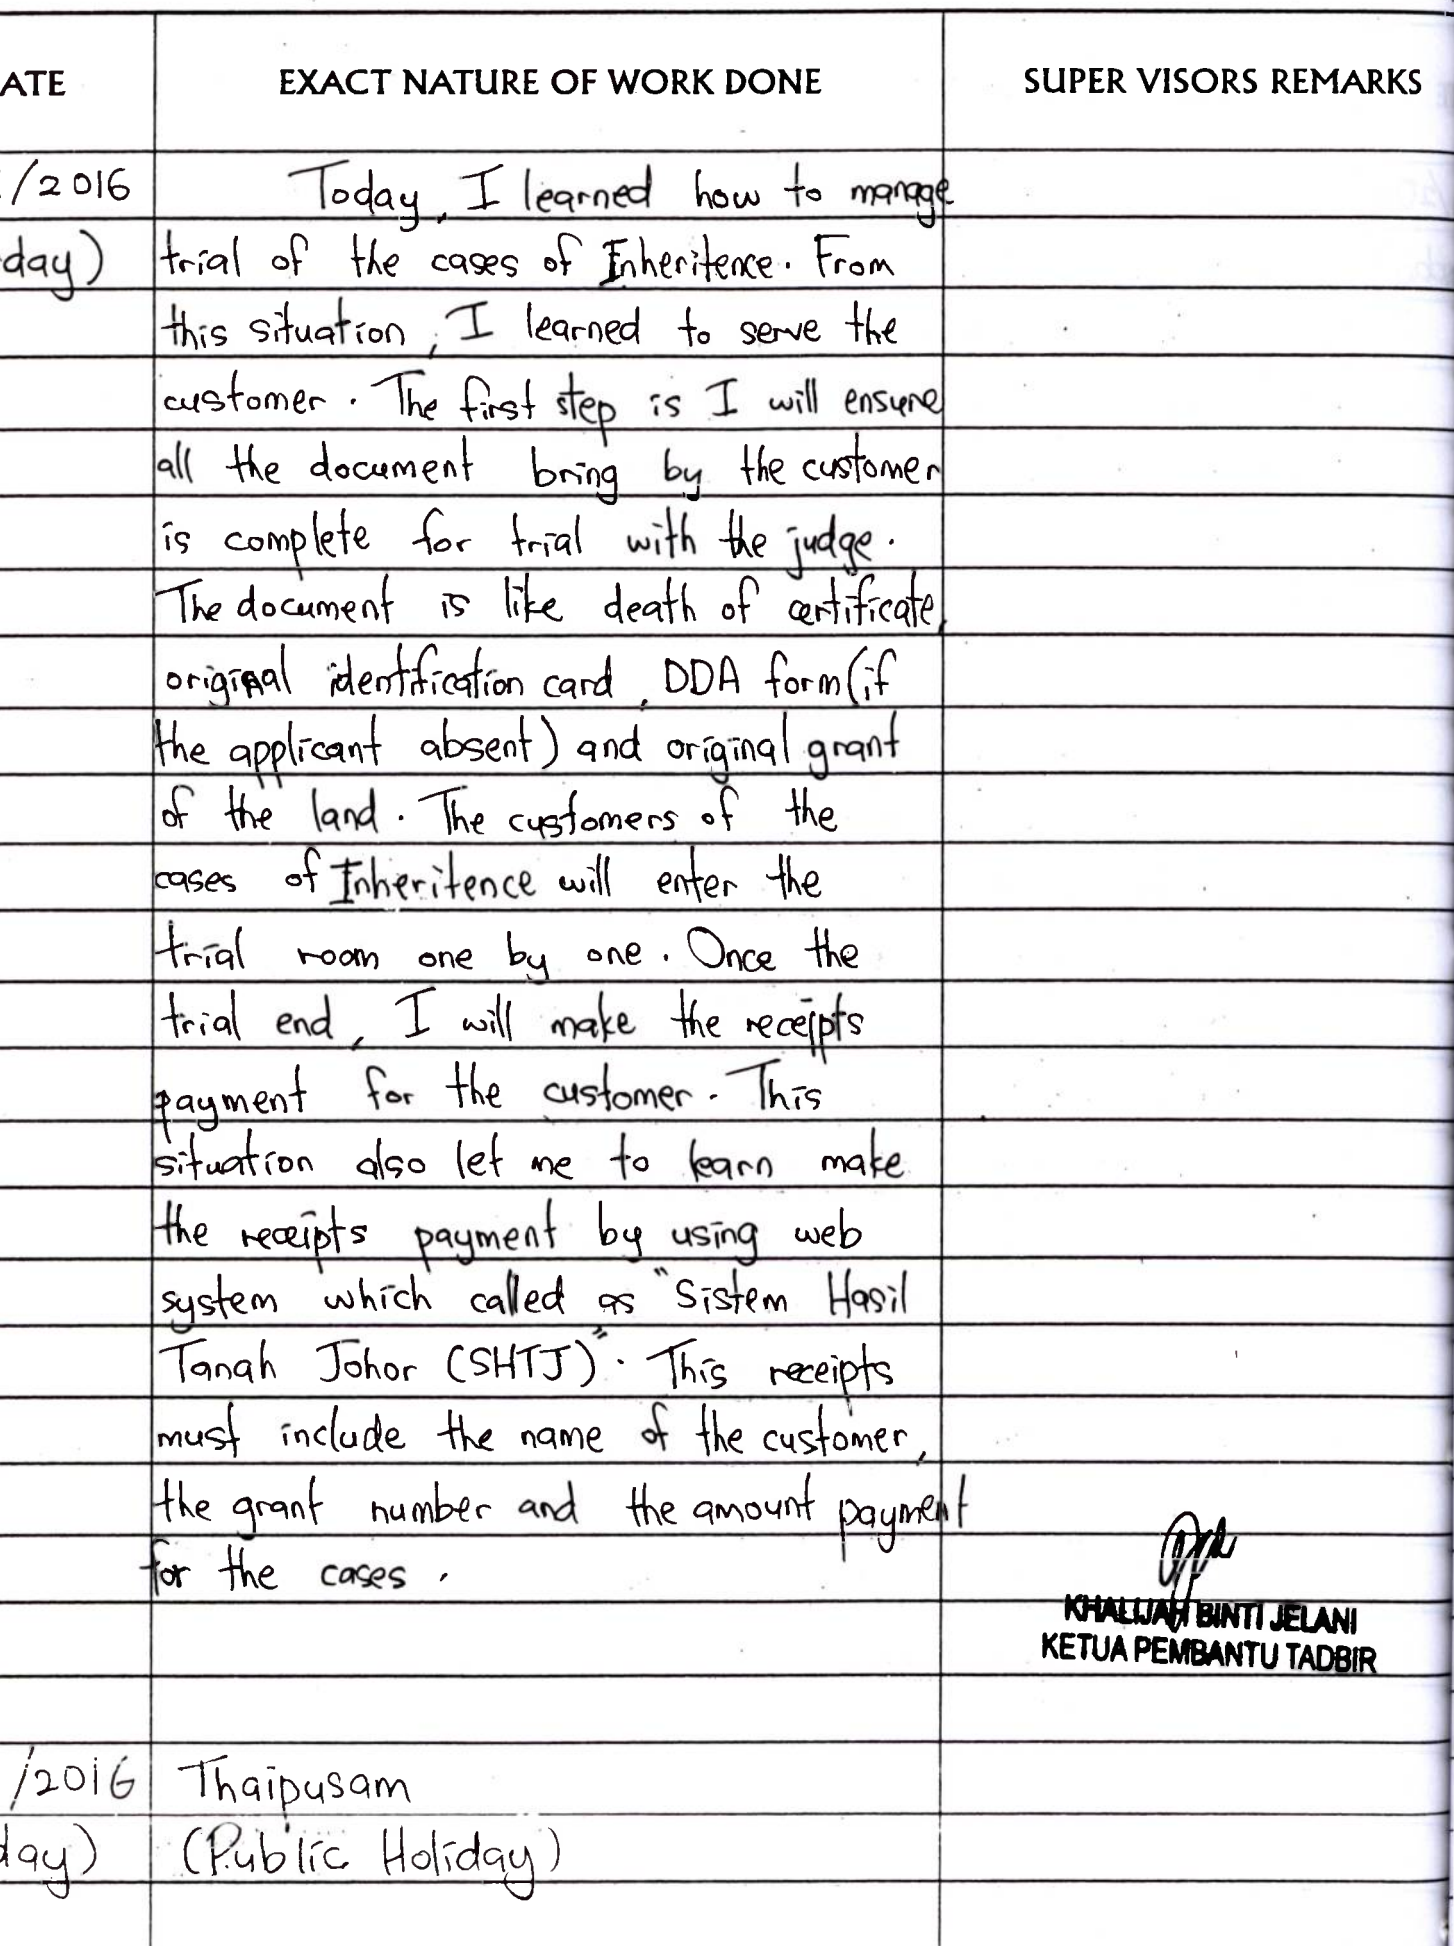 ATE EXACT NATURE OF WORK DONE SUPER VISORS REMARKS
/2016 Today, I learned how to manage
day) trial of the cases of Inheritence. From
this situation, I learned to serve the
customer. The first step is I will ensure
all the document bring by the customer
is complete for trial with the judge.
The document is like death of certificate,
original identification card, DDA form (if
the applicant absent) and original grant
of the land. The customers of the
cases of Inheritence will enter the
trial room one by one. Once the
trial end, I will make the receipts
payment for the customer. This
situation also let me to learn make
the receipts payment by using web
system which called as "Sistem Hasil
Tanah Johor (SHTJ)". This receipts
must include the name of the customer,
the grant number and the amount payment
for the cases.
KHALIJAH BINTI JELANI
KETUA PEMBANTU TADBIR
/2016 Thaipusam
day) (Public Holiday)